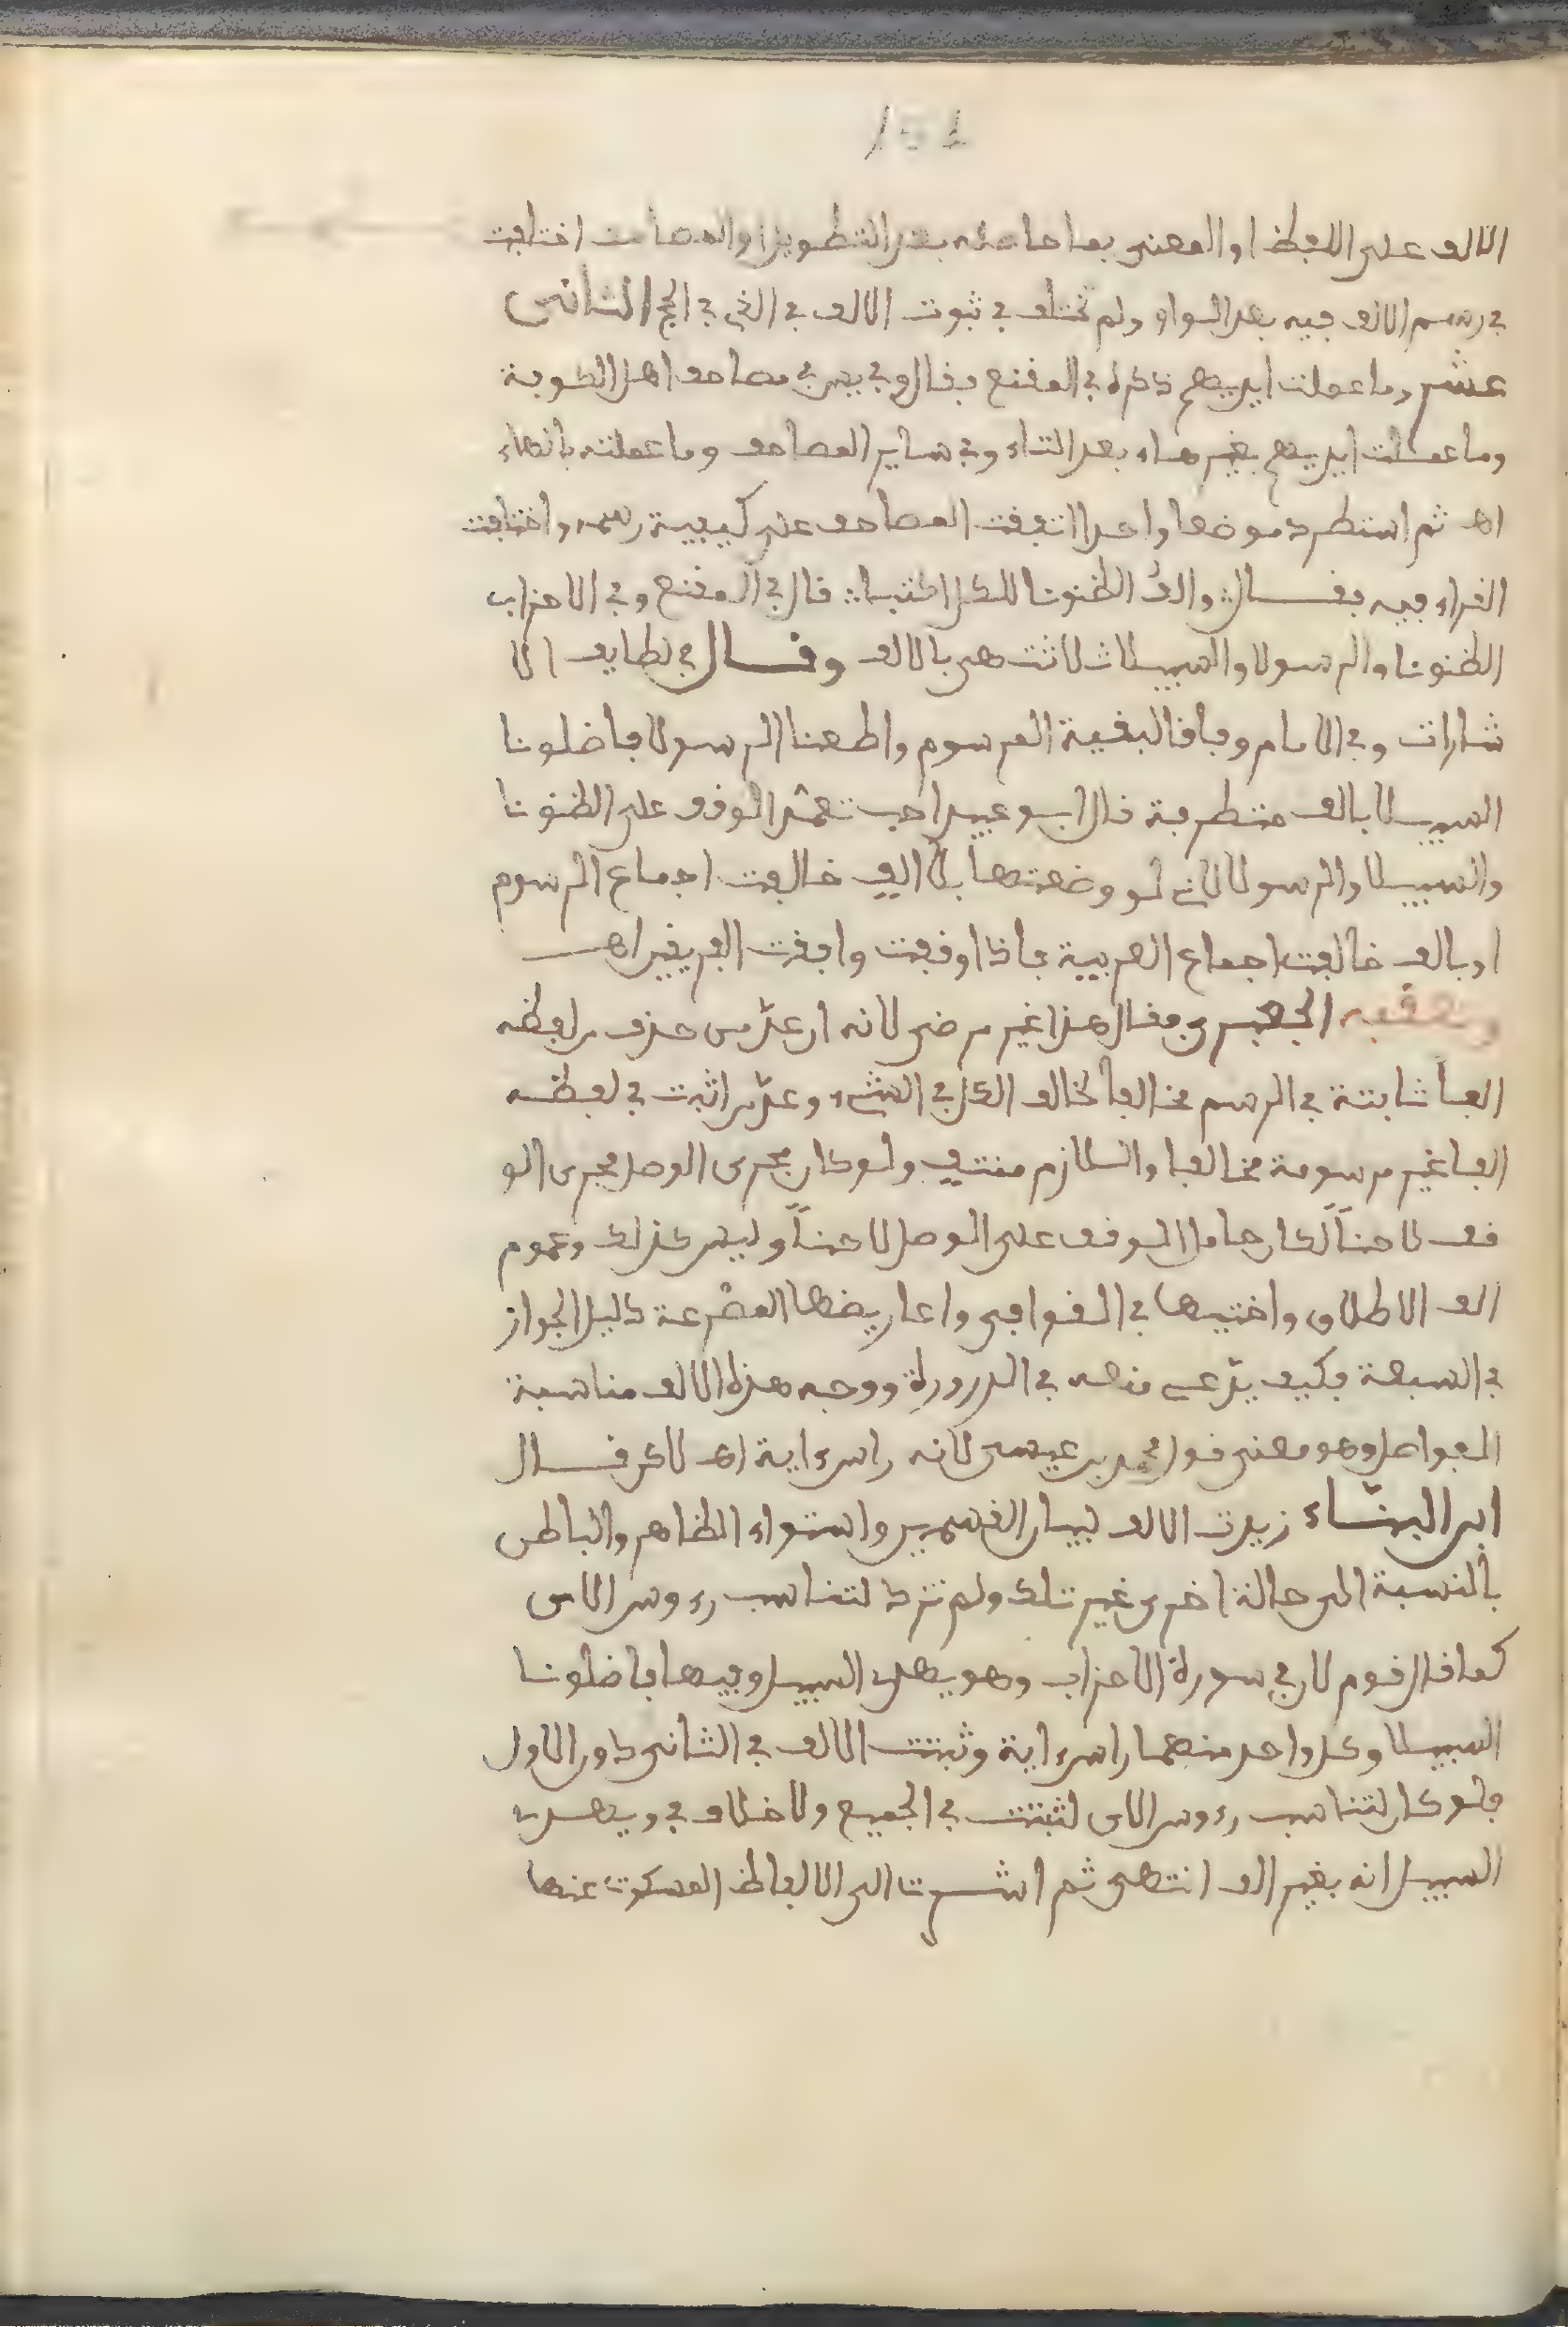 الالف على اللفظ او المعنى بما حاصله بعد التطويل والمصاحف اختلفت
في رسم الالف فيه بعد الواو ولم تختلف في ثبوت الالف في التي في الحج الثاني
عشر وما عملت ايديهم ذكره في المقنع فقال وفي يس في مصاحف اهل الكوفة
وما عملت ايديهم بغير هاء بعد التاء وفي ساير المصاحف وما عملته بالهاء
اه ثم استطرد موضعا واحدا اتفقت المصاحف على كيفية رسمه واختلفت
القراء فيه فقال: والف الظنونا للكل اكتبا: قال في المقنع وفي الاحزاب
الظنونا والرسولا والسبيلا ثلاثتهن بالالف وقال في لطايف الا
شارات وفي الامام وفاقا لبقية المرسوم واطعنا الرسولا فاضلونا
السبيلا بالف متطرفة قال ابو عبيد احب تعمد الوقف على الظنونا
والسبيلا والرسولا لاني لو وضعتها بلا الف خالفت اجماع الرسوم
او بالف خالفت اجماع العربية فاذا وقفت وافقت الفريقين اهـ
وتعقبه الجعبري فقال هذا غير مرضي لانه ان عد من حذف من لفظه
الفا ثابتة في الرسم مخالفا لخالف الكل في الشيء وعد من اثبت في لفظه
الفا غير مرسومة مخالفا واللازم منتف ولو كان مجرى الوصل مجرى الو
قف لاحنا لكان حامل الوقف على الوصل لاحنا وليس كذلك وعموم
الف الاطلاق واختيها في القوافي واعاريضها المصرعة دليل الجواز
في السبعة فكيف يدعى منعه في الدرورة ووجه هذه الالف مناسبة
الفواصل وهو معنى قول محمد بن عيسى لانه راس ءاية اه لاكن قال
ابن البناء زيدت الالف لبيان القسمين واستواء الظاهر والباطن
بالنسبة الى حالة اخرى غير تلك ولم تزد لتناسب رءوس الاى
كما قال قوم لان في سورة الاحزاب وهو يهدى السبيل وفيها فاضلونا
السبيلا وكل واحد منهما راس ءاية وثبتت الالف في الثاني دون الاول
فلو كان لتناسب رءوس الاى لثبتت في الجميع ولا خلاف في ويهدى
السبيل انه بغير الف انتهى ثم اشرت الى الالفاظ المسكوت عنها